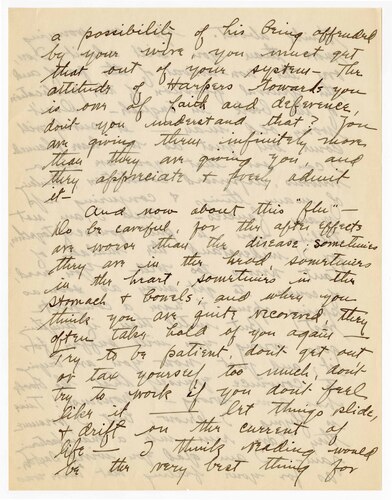 a possibility of his being offended
by your wire, you must get
that out of your system— The
attitude of Harpers towards you
is one of faith and deference,
don't you understand that? You
are giving them infinitely more
than they are giving you, and
they appreciate & freely admit
it—
And now about this "flu"—
Do be careful, for the after effects
are worse than the disease; sometimes
they are in the head sometimes
in the heart, sometimes in the
stomach & bowels; and when you
think you are quite recovered they
often take hold of you again —
Try to be patient, don't get out
or tax yourself too much, don't
try to work if you don't feel
like it — let things slide,
& drift on the current of
life — I think reading would
be the very best thing for